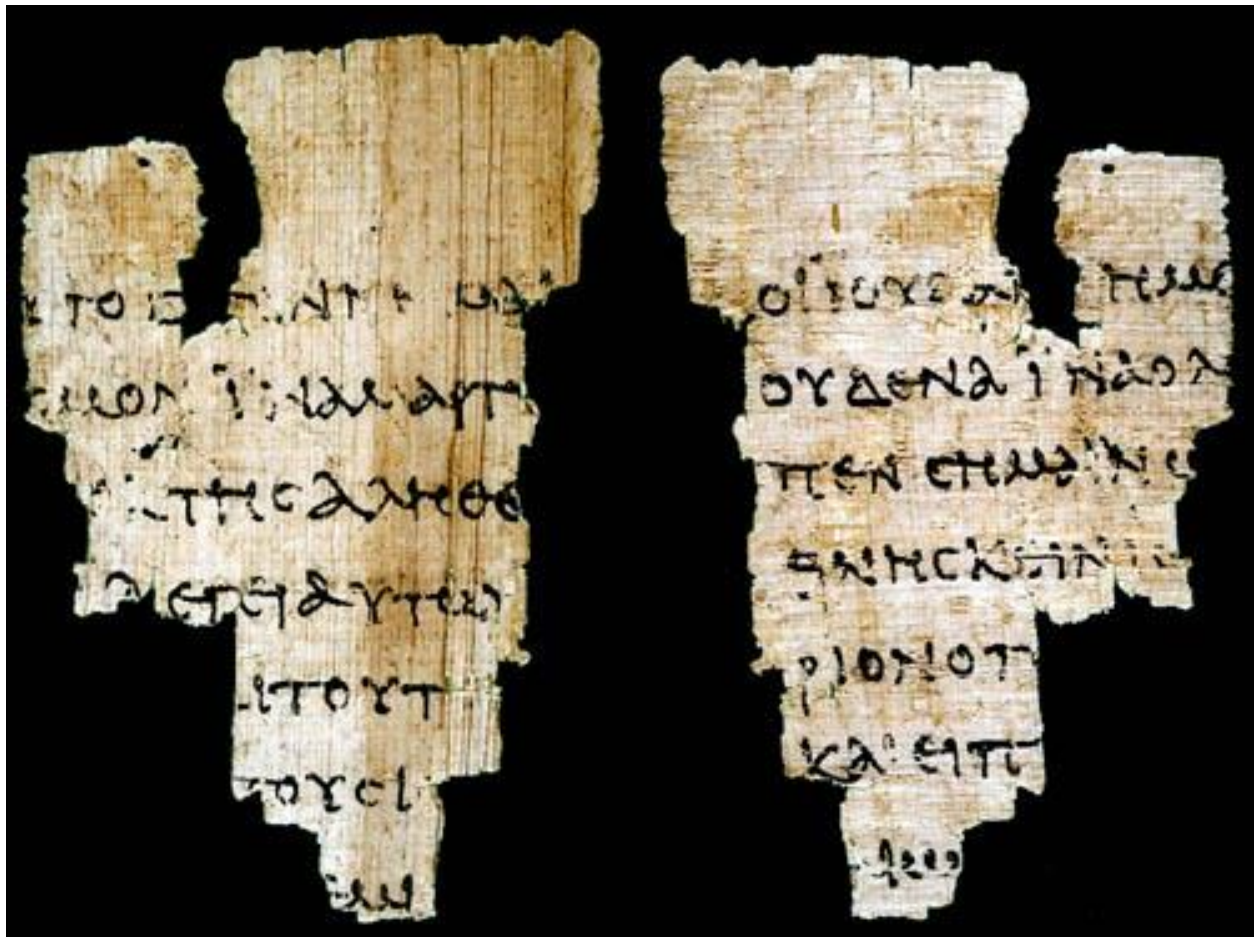 ΥΤΟ Γ ΓΕΝΝΗΜΑΙ
CΜΟΝ ΪΝΑ ΜΑΡΤΥ
ΕΚ ΤΗC ΑΛΗΘΕ
ΛΕΓΕΙ ΑΥΤΩ
ΑΙ ΤΟΥΤ
ΤΟΥC Ι
ΟΙ ΪΟΥΔΑΙ ΗΜΕ
ΟΥΔΕΝΑ ΪΝΑ Ο Λ
ΠΕΝ CΗΜΑΙΝΩ
ΘΝΗCΚΕΙΝ
ΡΙΟΝ Ο Π
ΚΑΙ ΕΙΠ